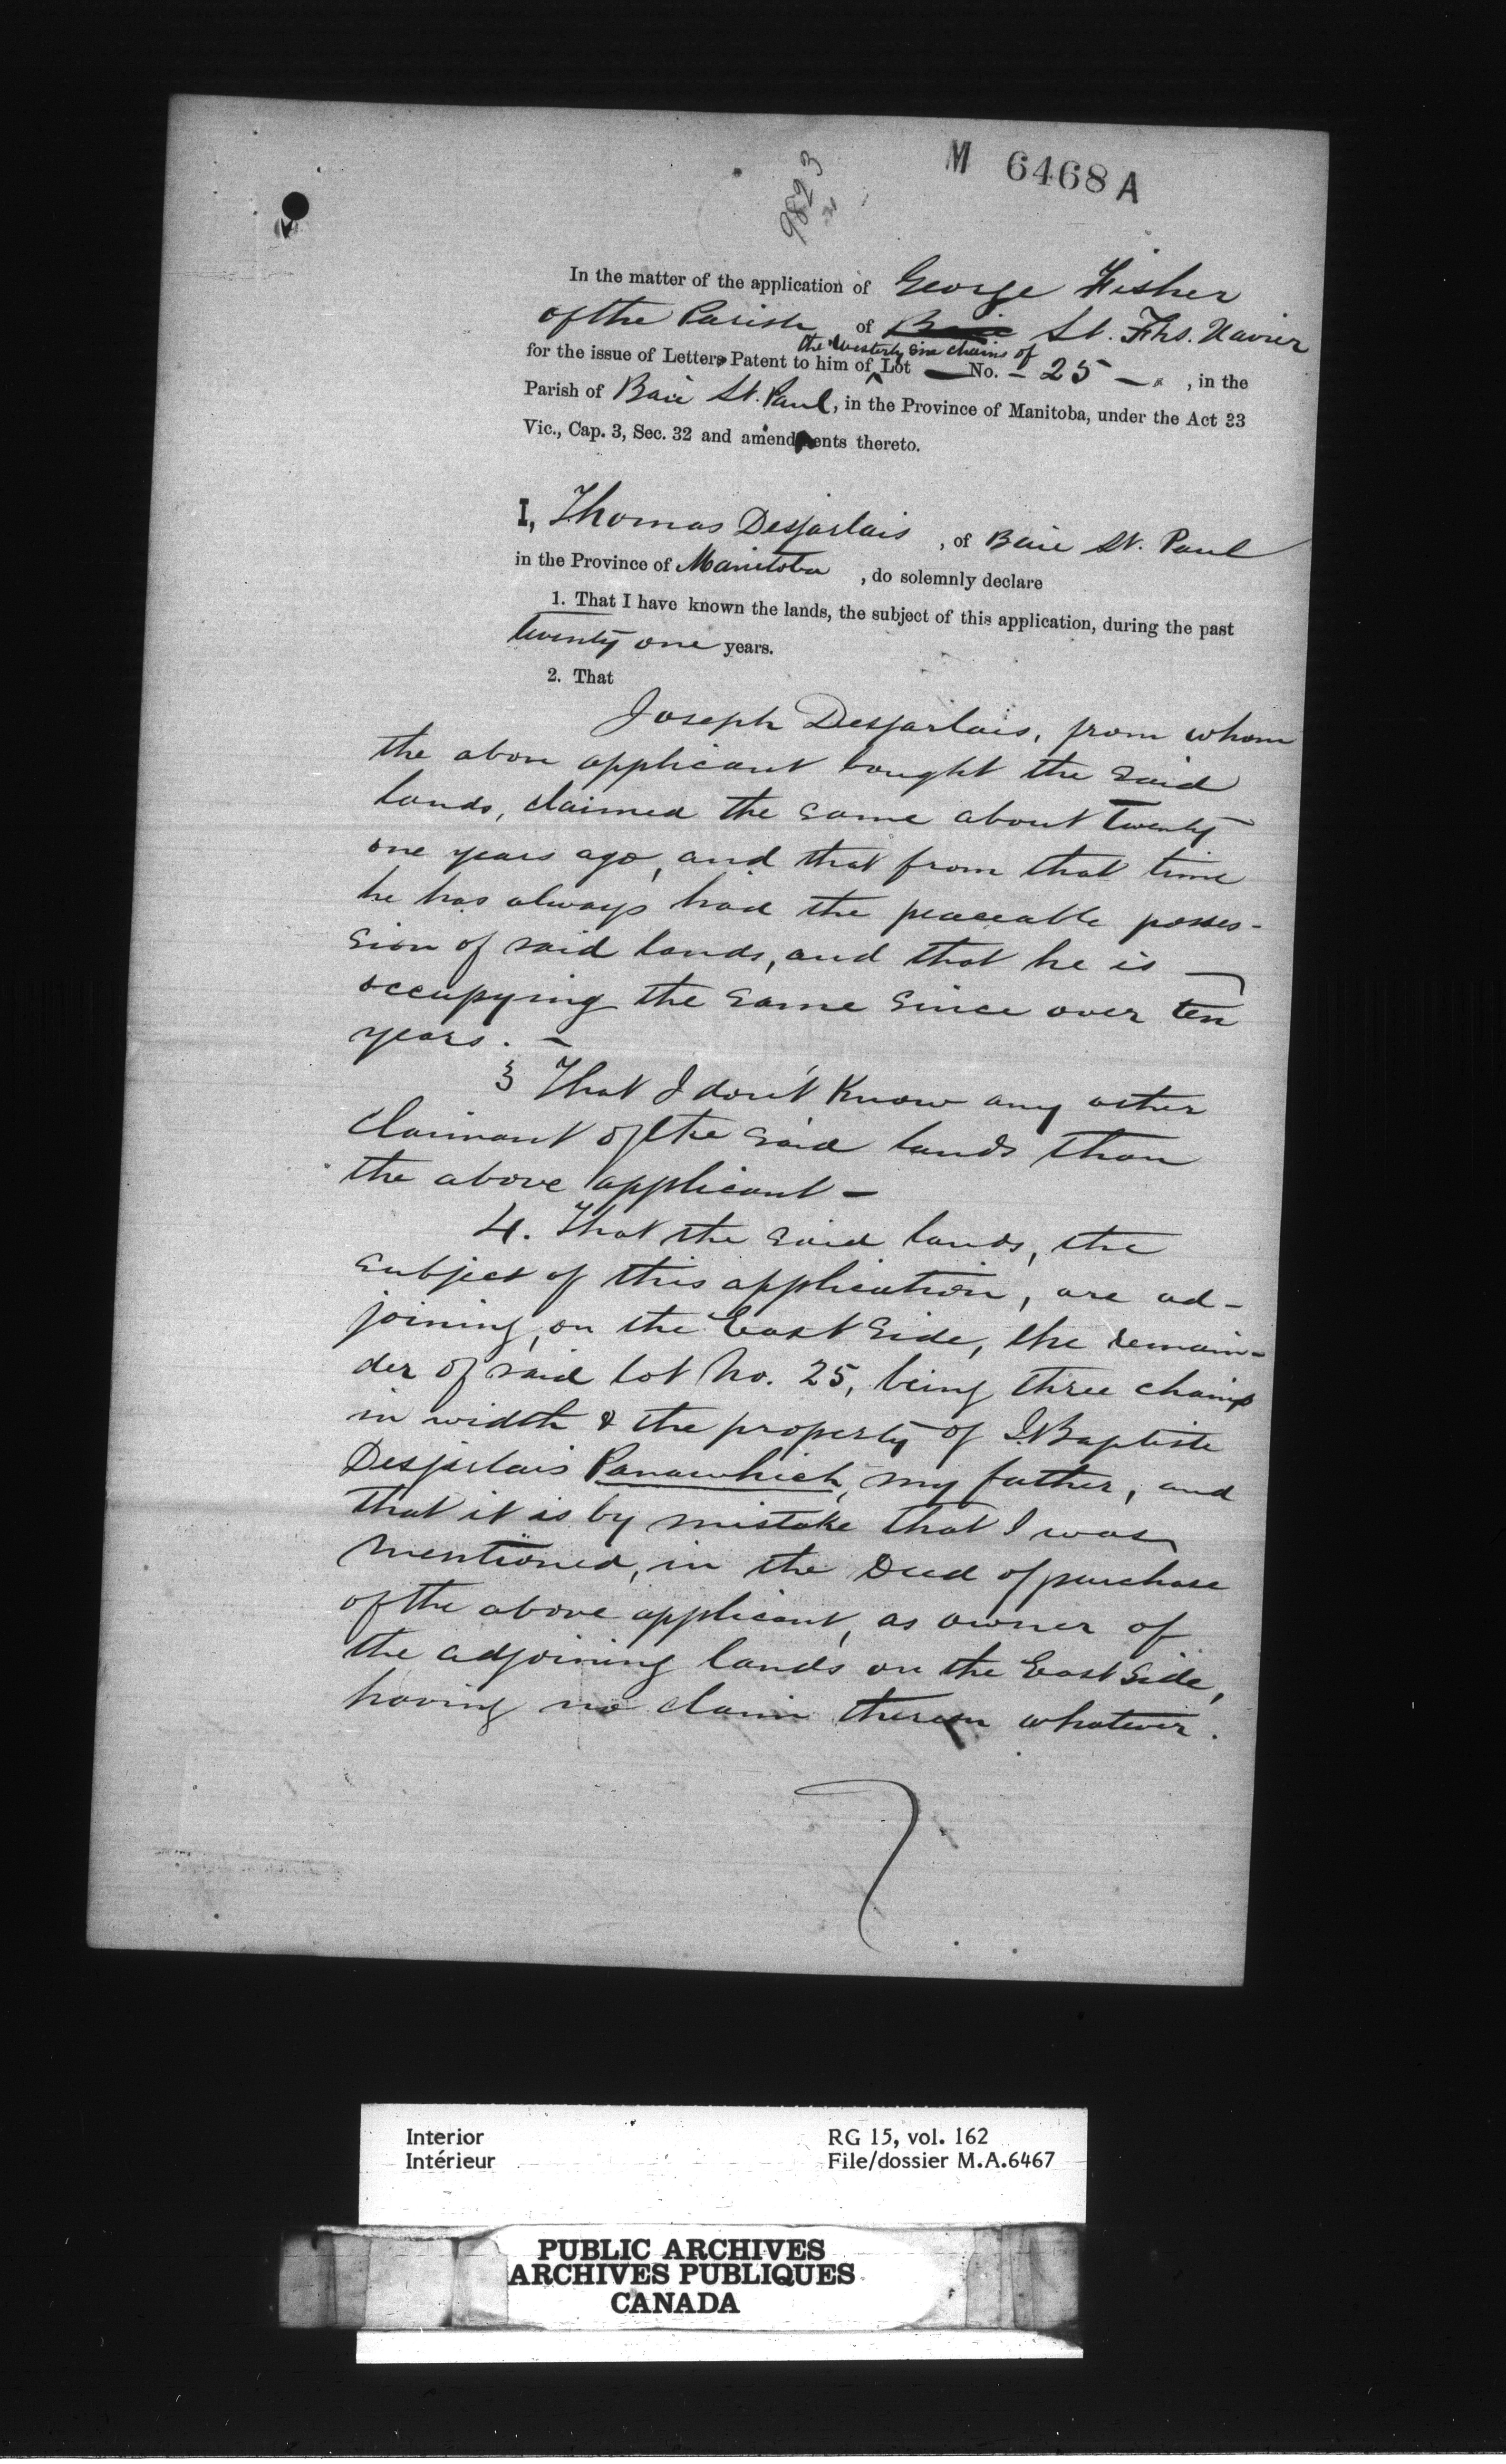 M 6468 A
9823
In the matter of the application of George Fisher
of the Parish of Baie St. Frs. Xavier
the Westerly six chains of
for the issue of Letters Patent to him of Lot No. - 25 - , in the
Parish of Baie St. Paul, in the Province of Manitoba, under the Act 33
Vic., Cap. 3, Sec. 32 and amendments thereto.
I, Thomas Desjarlais , of Baie St. Paul
in the Province of Manitoba , do solemnly declare
1. That I have known the lands, the subject of this application, during the past
twenty one years.
2. That
Joseph Desjarlais, from whom
the above applicant bought the said
lands, claimed the same about twenty
one years ago, and that from that time
he has always had the peaceable posses-
sion of said lands, and that he is
occupying the same since over ten
years. -
3 That I don't Know any other
claimant of the said lands than
the above applicant -
4. That the said lands, the
subject of this application, are ad-
joining, on the East Side, the remain-
der of said lot No. 25, being three chains
in width & the property of J. Baptiste
Desjarlais Panawhich, my father, and
that it is by mistake that I was
mentioned, in the Deed of purchase
of the above applicant, as owner of
the adjoining lands on the East Side,
having no claim thereon whatever.
Interior
Intérieur
RG 15, vol. 162
File/dossier M.A.6467
PUBLIC ARCHIVES
ARCHIVES PUBLIQUES
CANADA